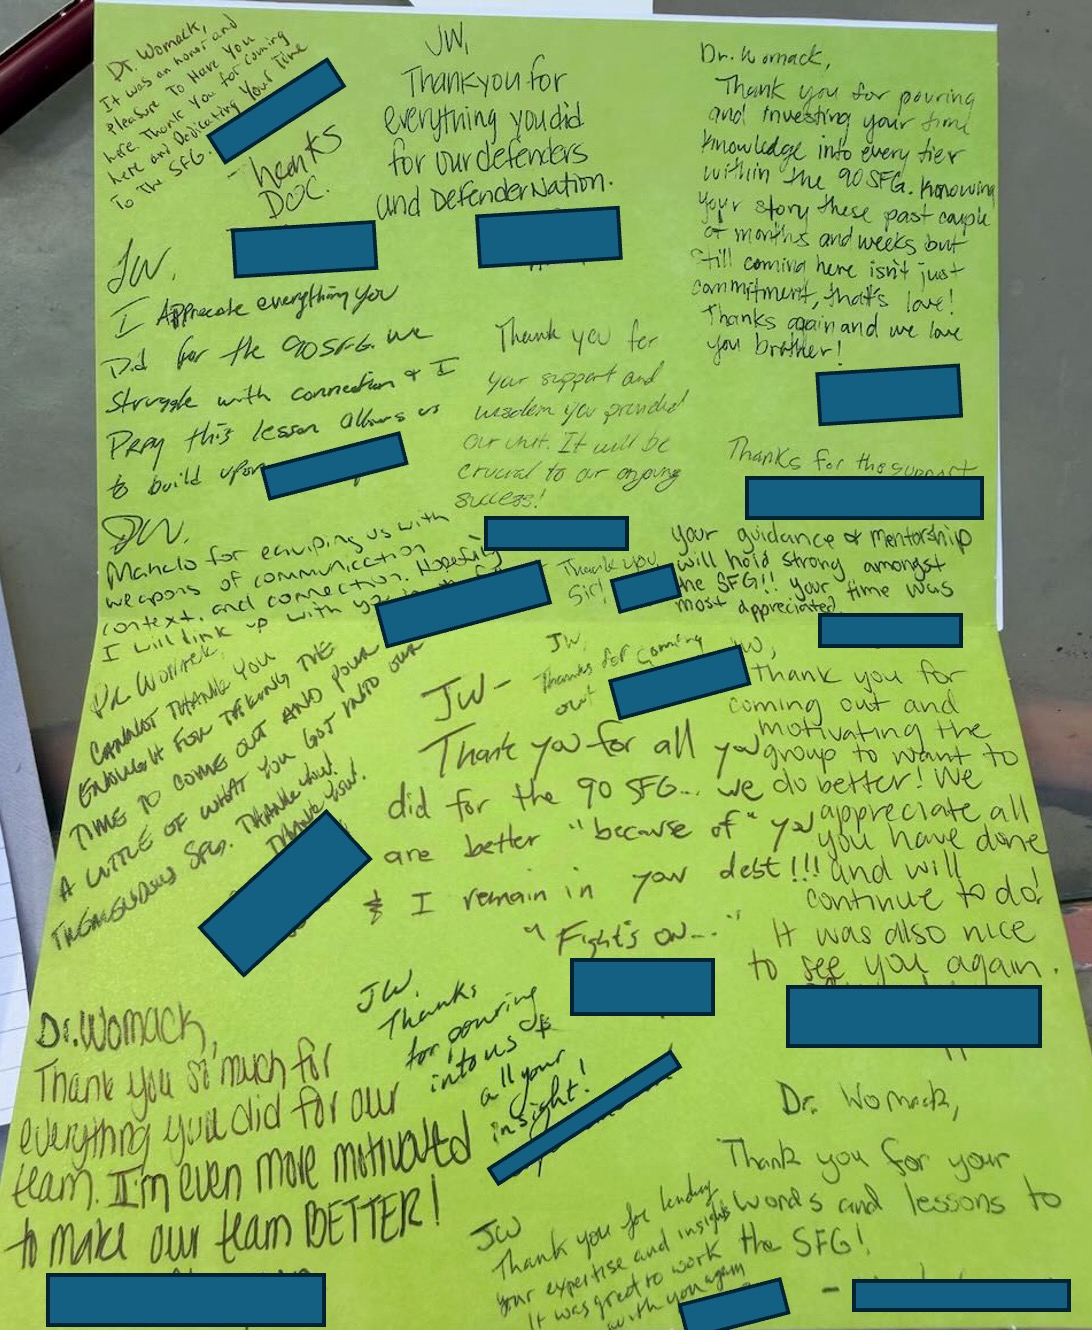 Dr. Womack,
It was an honor and
pleasure To Have You
here. Thank You for coming
here and Dedicating Your Time
To The SFG.
- Thanks
DOC.
JW,
Thank you for
everything you did
for our defenders
and Defender Nation.
Dr. Womack,
Thank you for pouring
and investing your time
knowledge into every tier
within the 90 SFG. Knowing
your story these past couple
of months and weeks but
still coming here isn't just
commitment, that's love!
Thanks again and we love
you brother!
JW.
I Apprecate everything you
Did for the 90 SFG. We
struggle with connection & I
Pray this lesson allows us
to build upon
Thank you for
your support and
wisdom you provided
our unit. It will be
crucial to our ongoing
success!
Thanks for the support
JW.
Mahalo for equiping us with
weapons of communication
context, and connection. Hopefully
I will link up with you
Thank you
Sir!
your guidance & mentorship
will hold strong amongst
the SFG!! your time was
most appreciated
Dr. Womack,
CANNOT THANK YOU
ENOUGH FOR TAKING THE
TIME TO COME OUT AND POUR
A LITTLE OF WHAT YOU GOT INTO OUR
TREMENDOUS SFG. THANK YOU!
THANK YOU!
JW,
Thanks for coming
out
JW-
Thank you for all you
did for the 90 SFG... we
are better "because of" you
& I remain in your debt!!!
"Fight's on..."
JW,
Thank you for
coming out and
motivating the
group to want to
do better! We
appreciate all
you have done
and will
continue to do!
It was also nice
to see you again.
Dr. Womack,
Thank you so much for
everything you did for our
team. I'm even more motivated
to make our team BETTER!
JW
Thanks
for pouring
into us &
all your
insight!
Dr. Womack,
Thank you for your
words and lessons to
the SFG!
JW
Thank you for lending
your expertise and insights
It was great to work
with you again